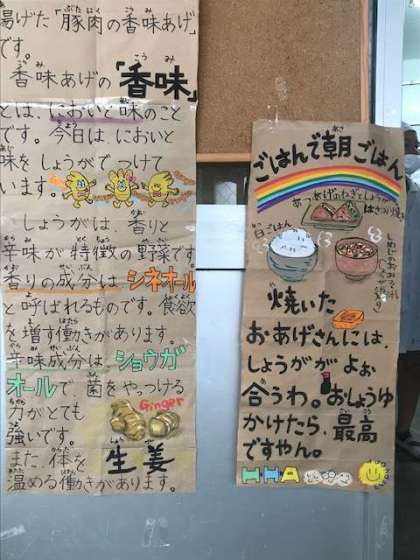 揚げた「豚肉の香味あげ」
です。
香味あげの「香味」
とは、においと味のこと
です。今日は においと
味を しょうがでつけて
います。
しょうがは、香りと
辛味が特徴の野菜です。
香りの成分は シネオール
と呼ばれるものです。食欲
を増す働きがあります。
辛味成分は、ショウガ
オールで、菌をやっつける
力がとても
強いです。
Ginger
また、体を 生姜
温める働きがあります。
ごはんで朝ごはん
白ごはん
焼いた
おあげさんには、
しょうががよぉ
合うわ。おしょうゆ
かけたら、最高
ですやん。
HHA